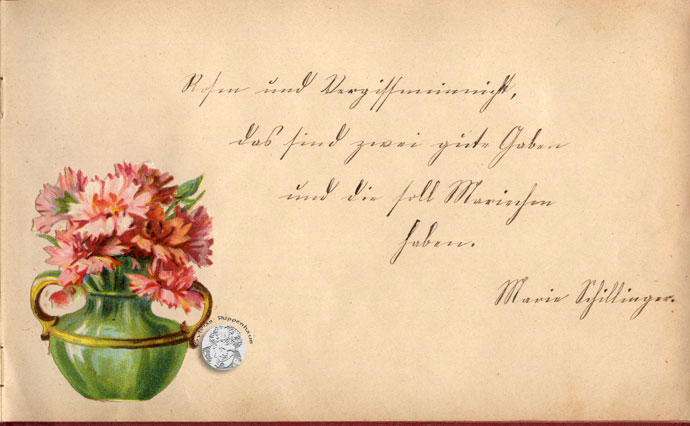 Rosen und Vergissmeinnicht,
das sind zwei gute Gaben
und die soll Mariechen
haben.
Marie Schillinger.
Pappenheim